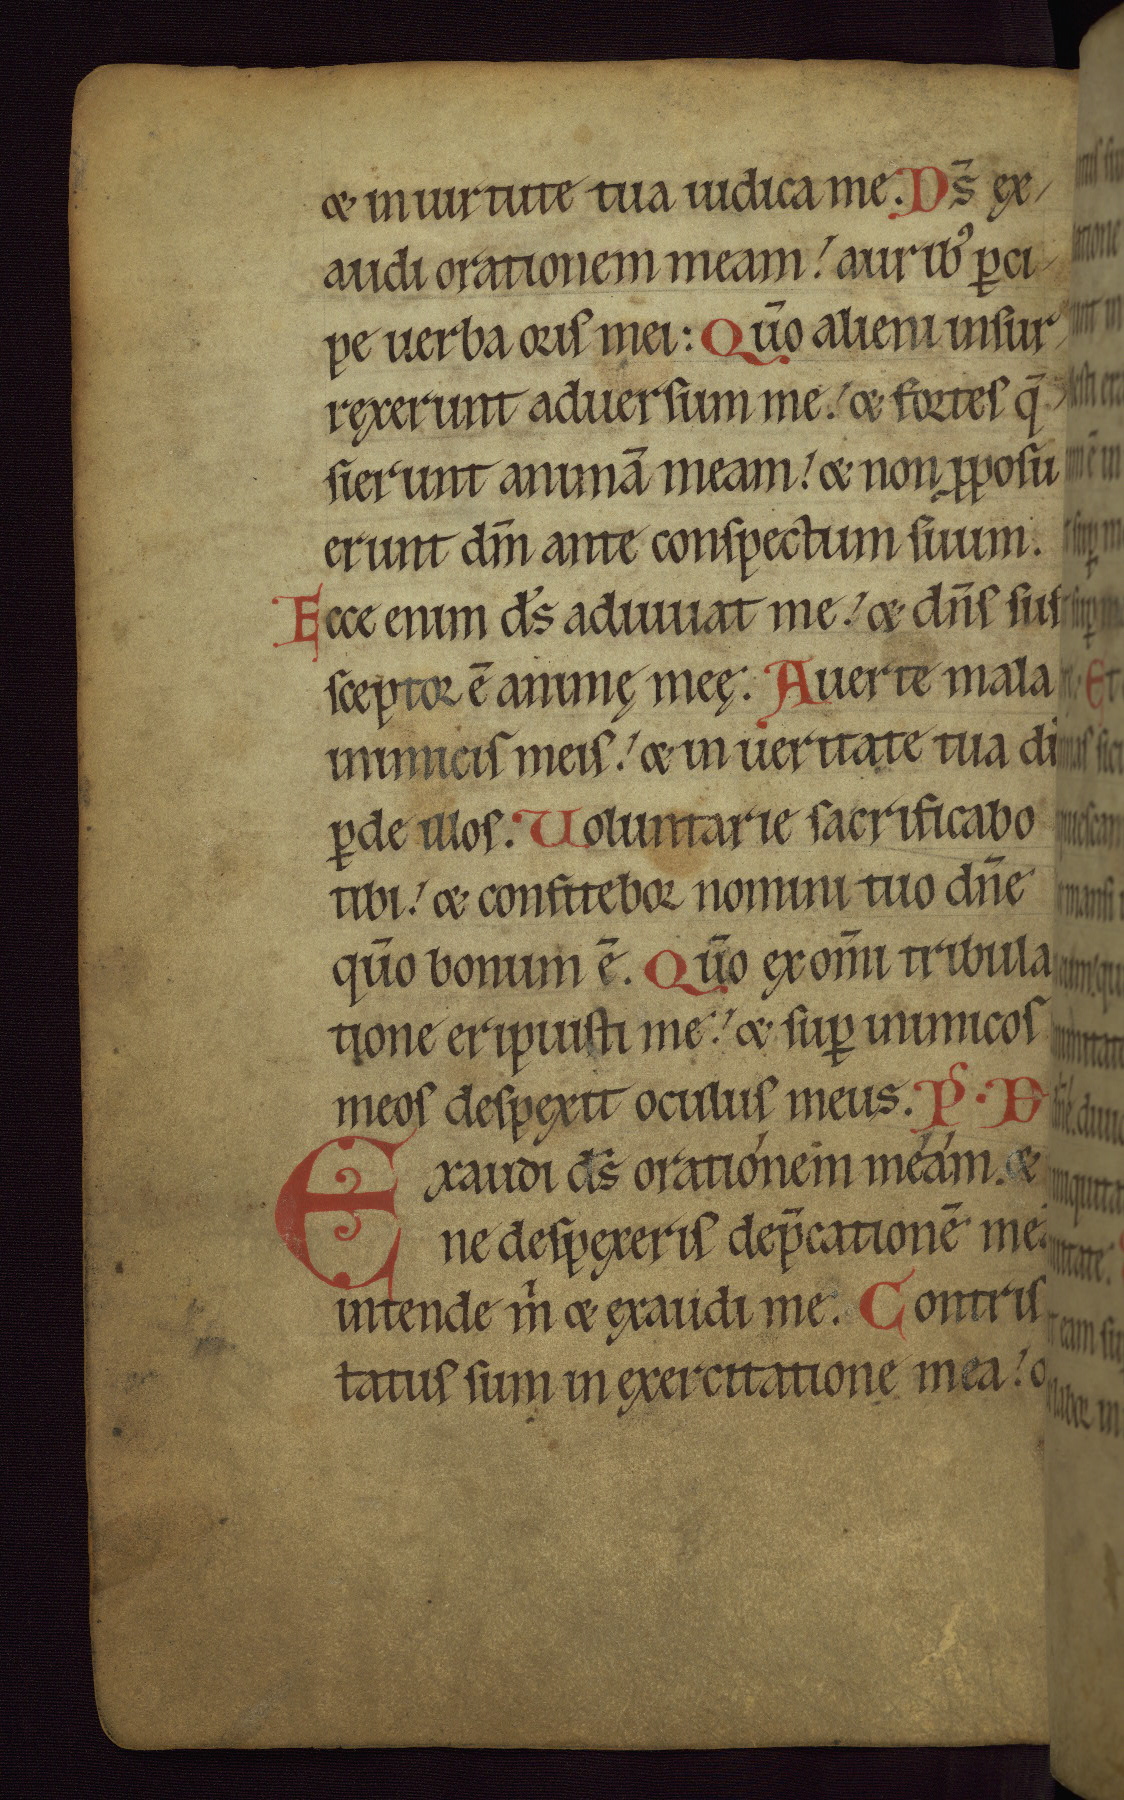 & in uirtute tua iudica me. Ds̄ ex
audi orationem meam! aurib; ꝑci
pe uerba oris mei: Qūo alieni insur
rexerunt aduersum me! & fortes q̄
sierunt animā meam! & non ꝓposu
erunt dm̄ ante conspectum suum.
Ecce enim ds̄ adiuuat me! & dn̄s sus
sceptor ē animę meę. Auerte mala
inimicis meis! & in ueritate tua di
ꝑde illos. Uoluntarie sacrificabo
tibi! & confitebor nomini tuo dn̄e
qūo bonum ē. Qūo ex om̄i tribula
tione eripuisti me! & suꝑ inimicos
meos despexit oculus meus. Ps · D
Exaudi ds̄ orationem meam. &
ne despexeris dep̄cationē me
intende m̄ & exaudi me. Contris
tatus sum in exercitatione mea!